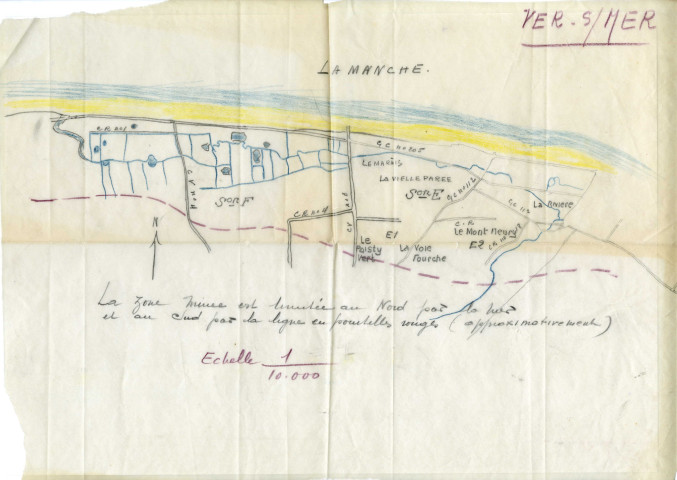 VER-S/MER
LA MANCHE.
C.R. No1
G.C. No 205
LE MARAIS
LA VIELLE PAREE
Son F
Son E
G.C No 112
G.C 112
La Rivière
C.R
Le Mont Fleury
E1
E2
Le
Paisty
Vert
La Voie
Fourche
C.E No 4
N
La zone minée est limitée au Nord par la mer
et au Sud par la ligne en pointillés rouges (approximativement)
Echelle 1
10.000